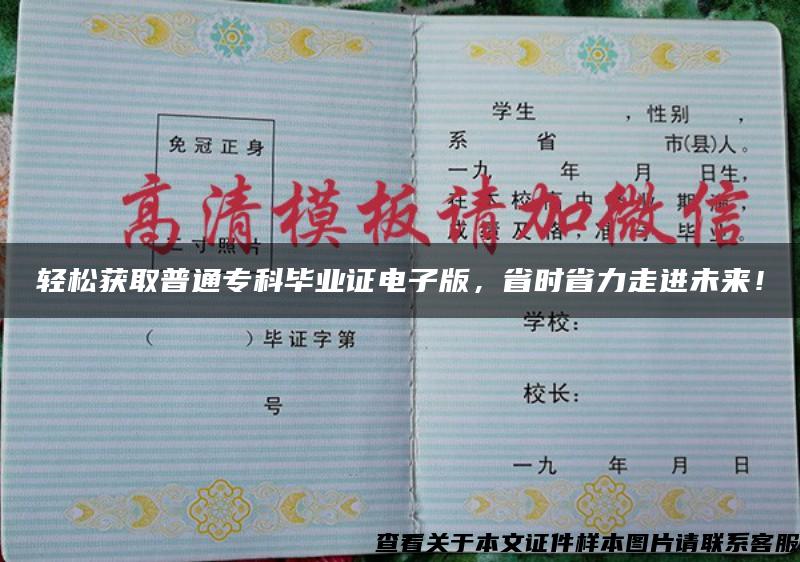 免冠正身
二寸照片
学生 ，性别 ，
系 省 市(县)人。
一九 年 月 日生，
在 校 中 业 期 ，
成绩及格，准予毕业。
高清模板请加微信
轻松获取普通专科毕业证电子版，省时省力走进未来！
（ ）毕证字第
号
学校：
校长：
一九 年 月 日
查看关于本文证件样本图片请联系客服